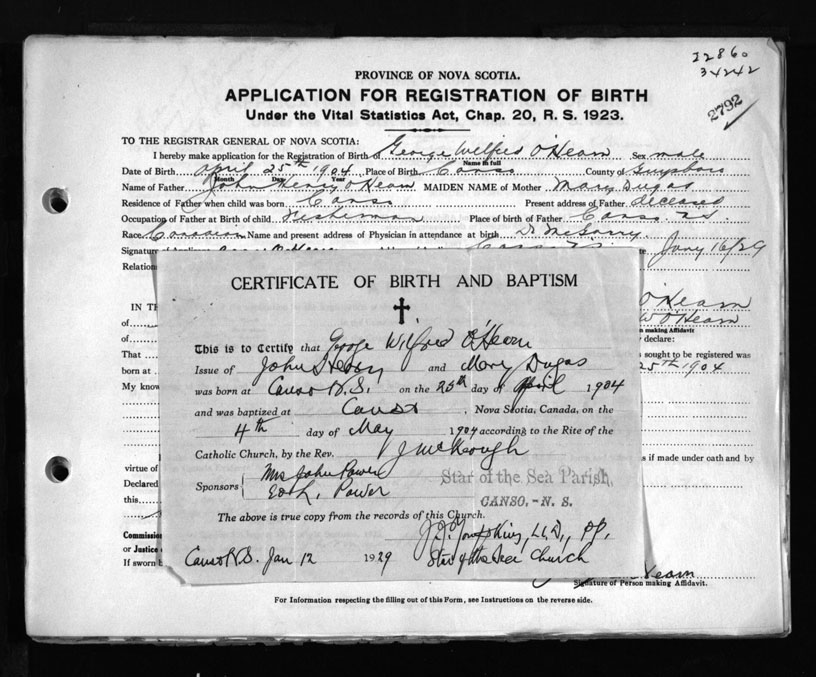 I2860
34242
2792
PROVINCE OF NOVA SCOTIA.
APPLICATION FOR REGISTRATION OF BIRTH
Under the Vital Statistics Act, Chap. 20, R. S. 1923.
TO THE REGISTRAR GENERAL OF NOVA SCOTIA:
I hereby make application for the Registration of Birth of George Wilfred O'Hearn Sex male
Name in full
Date of Birth April 25th 1904 Place of Birth Canso County of Guysboro
Month Day Year
Name of Father John Henry O'Hearn MAIDEN NAME of Mother Mary Dugas
Residence of Father when child was born Canso Present address of Father deceased
Occupation of Father at Birth of child Fisherman Place of birth of Father Canso NS
Race Canadian Name and present address of Physician in attendance at birth Dr
Signature of Jany 16/29
Relation
IN TH O'Hearn
of W O'Hearn
making Affidavit
of declare:
That sought to be registered was
born at 25th 1904
My know
s if made under oath and by
virtue of
Declared
this
Commission
or Justice
If sworn b
CERTIFICATE OF BIRTH AND BAPTISM
This is to Certify that George Wilfred O'Hearn
Issue of John Henry and Mary Dugas
was born at Canso N.S. on the 25th day of April 1904
and was baptized at Canso, Nova Scotia, Canada, on the
4th day of May 1904 according to the Rite of the
Catholic Church, by the Rev. J McKeough
Sponsors Mrs John Power
Power
Star of the Sea Parish,
CANSO, - N. S.
The above is true copy from the records of this Church.
LL.D., P.P.
Canso N.S. Jan 12 1929 Star of the Sea Church
Hearn
Signature of Person making Affidavit.
For Information respecting the filling out of this Form, see Instructions on the reverse side.